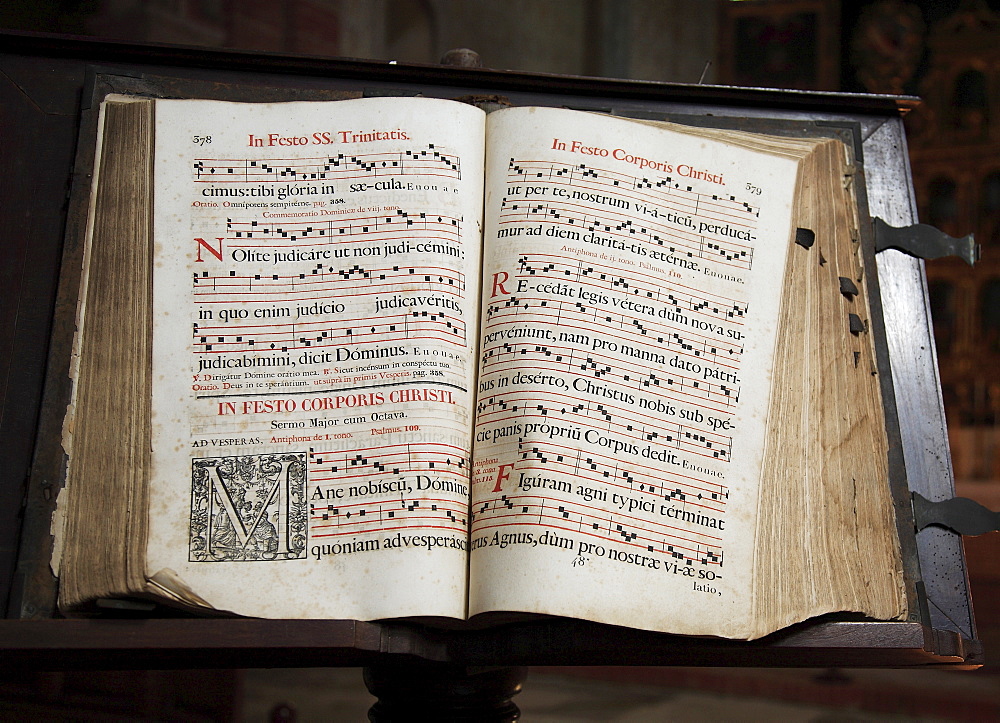 578
In Festo SS. Trinitatis.
cimus: tibi glória in sæ-cula. E u o u a e
Oratio. Omnipotens sempitérne. pag. 358.
Commemoratio Dominicæ de viij. tono.
NOlite judicáre ut non judi-cémini:
in quo enim judício judicavéritis,
judicabímini, dicit Dóminus. E u o u a e.
℣. Dirigátur Dómine oratio mea. ℟. Sicut incénsum in conspéctu tuo.
Oratio. Deus in te sperántium. ut suprà in primis Vesperis. pag. 358.
IN FESTO CORPORIS CHRISTI.
Sermo Major cum Octava.
AD VESPERAS. Antiphona de I. tono. Psalmus. 109.
MAne nobíscũ, Dómine
quóniam advesperásc
In Festo Corporis Christi. 579
ut per te, nostrum vi-á-ticũ, perducá-
mur ad diem claritá-tis ætérnæ. E u o u a e.
Antiphona de ij. tono. Psalmus. 110.
RE-cédãt legis vétera dũm nova su-
pervéniunt, nam pro manna dato pátri-
bus in desérto, Christus nobis sub spé-
cie panis própriũ Corpus dedit. E u o u a e.
Antiphona
FIgúram agni týpici términat
rus Agnus, dùm pro nostræ vi-æ so-
48*
latio,